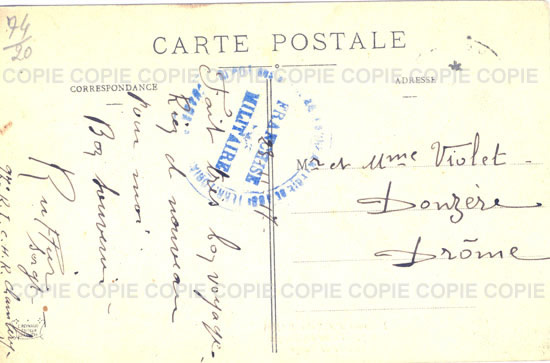 74
20
CARTE POSTALE
CORRESPONDANCE
ADRESSE
COPIE COPIE COPIE COPIE COPIE COPIE COPIE COPIE
Fait très bon voyage -
Rien d nouveau
pour moi.
Bon souvenir
FRANCHISE
MILITAIRE
Mr et Mme Violet -
Donzère
Drôme
COPIE COPIE COPIE COPIE COPIE COPIE COPIE COPIE